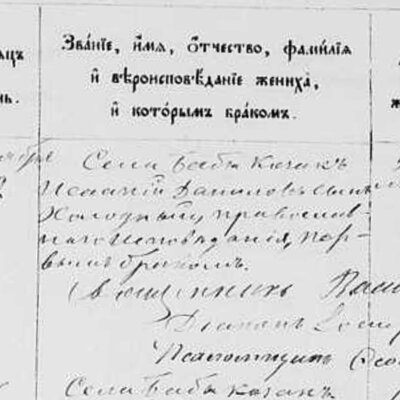 Зва́нїе, и҆́мѧ, ѻ҆́тчество, фами́лїѧ
и҆ вѣроисповѣ́данїе жениха̀,
и҆ кото́рымъ бра́комъ.
Села Бабы козакъ
Даниловъ сынъ
Холодный православ-
наго исповѣданія, пер-
вымъ бракомъ.
Священникъ
Діаконъ
Псаломщикъ
Села Бабы козакъ